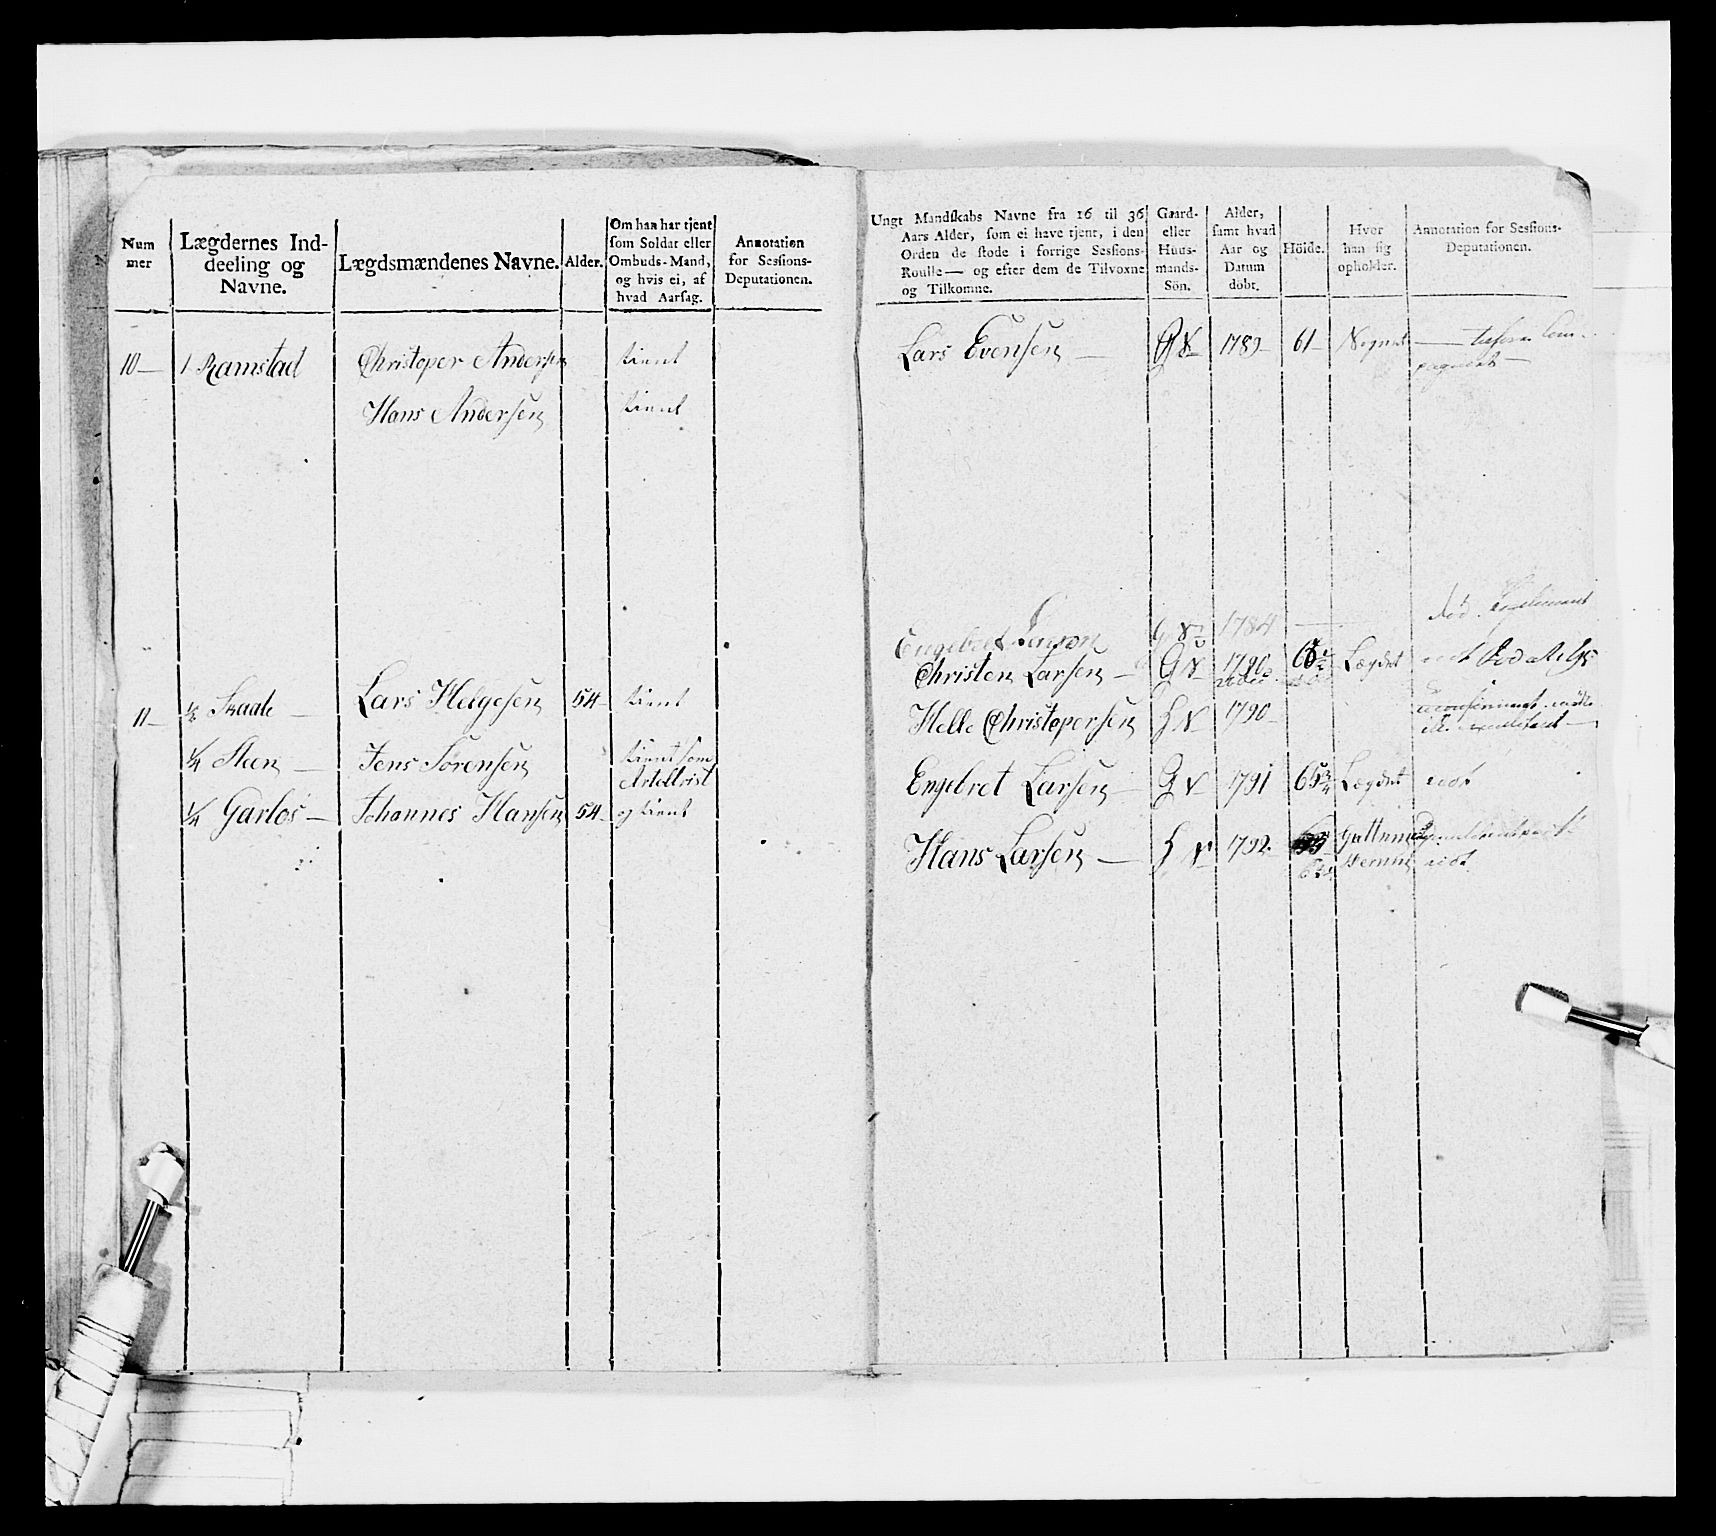 Num
mer
Lægdernes Ind-
deeling og
Navne.
Lægdsmændenes Navne.
Alder.
Om han har tjent
som Soldat eller
Ombuds-Mand,
og hvis ei, af
hvad Aarsag.
Annotation
for Sessions-
Deputationen.
10 — 1 Ramstad Christoper Andersen tient
Hans Andersen tient
11 — ½ Skade — Lars Helgesen 54 tient
¼ Steen — Jens Sörensen tient som
Artollrist
¼ Garlos — Johannes Hansen 54 og tient
Ungt Mandskabs Navne fra 16 til 36
Aars Alder, som ei have tjent, i den
Orden de stode i forrige Sessions-
Roulle — og efter dem de Tilvoxne
og Tilkomne.
Gaard-
eller
Huus-
mands-
Sön.
Alder,
samt hvad
Aar og
Datum
döbt.
Höide.
Hvor
han sig
opholder.
Annotation for Sessions-
Deputationen.
Lars Evensen — G N 1789 61 —
Engebret 1784 död
Christen Larsen — G N 1790 Lægdet
Helle Christopersen H N 1790
Engebret Larsen — G N 1791 65¾ Lægdet
Hans Larsen — H N 1792